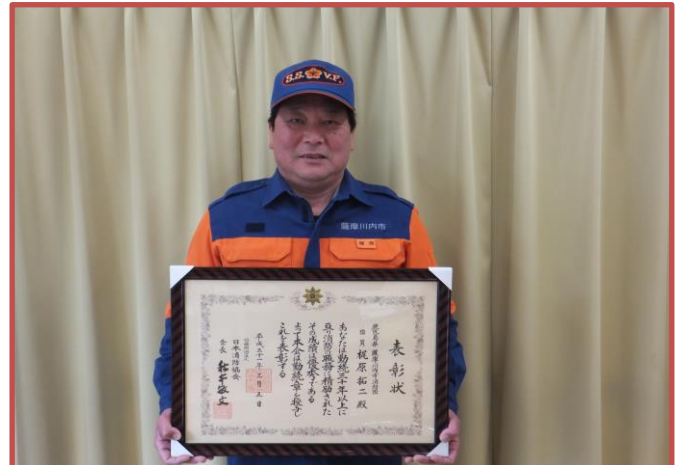 S.S.V.F.
薩摩川内市
表彰状
鹿児島県 薩摩川内市消防団
団員 梶原拓二殿
あなたは勤続三十年以上に
亘り消防の職務に精励された
その成績は優秀である
よって本会は勤続章を授与し
これを表彰する
平成三十一年三月五日
公益財団法人
日本消防協会
会長 秋本敏文